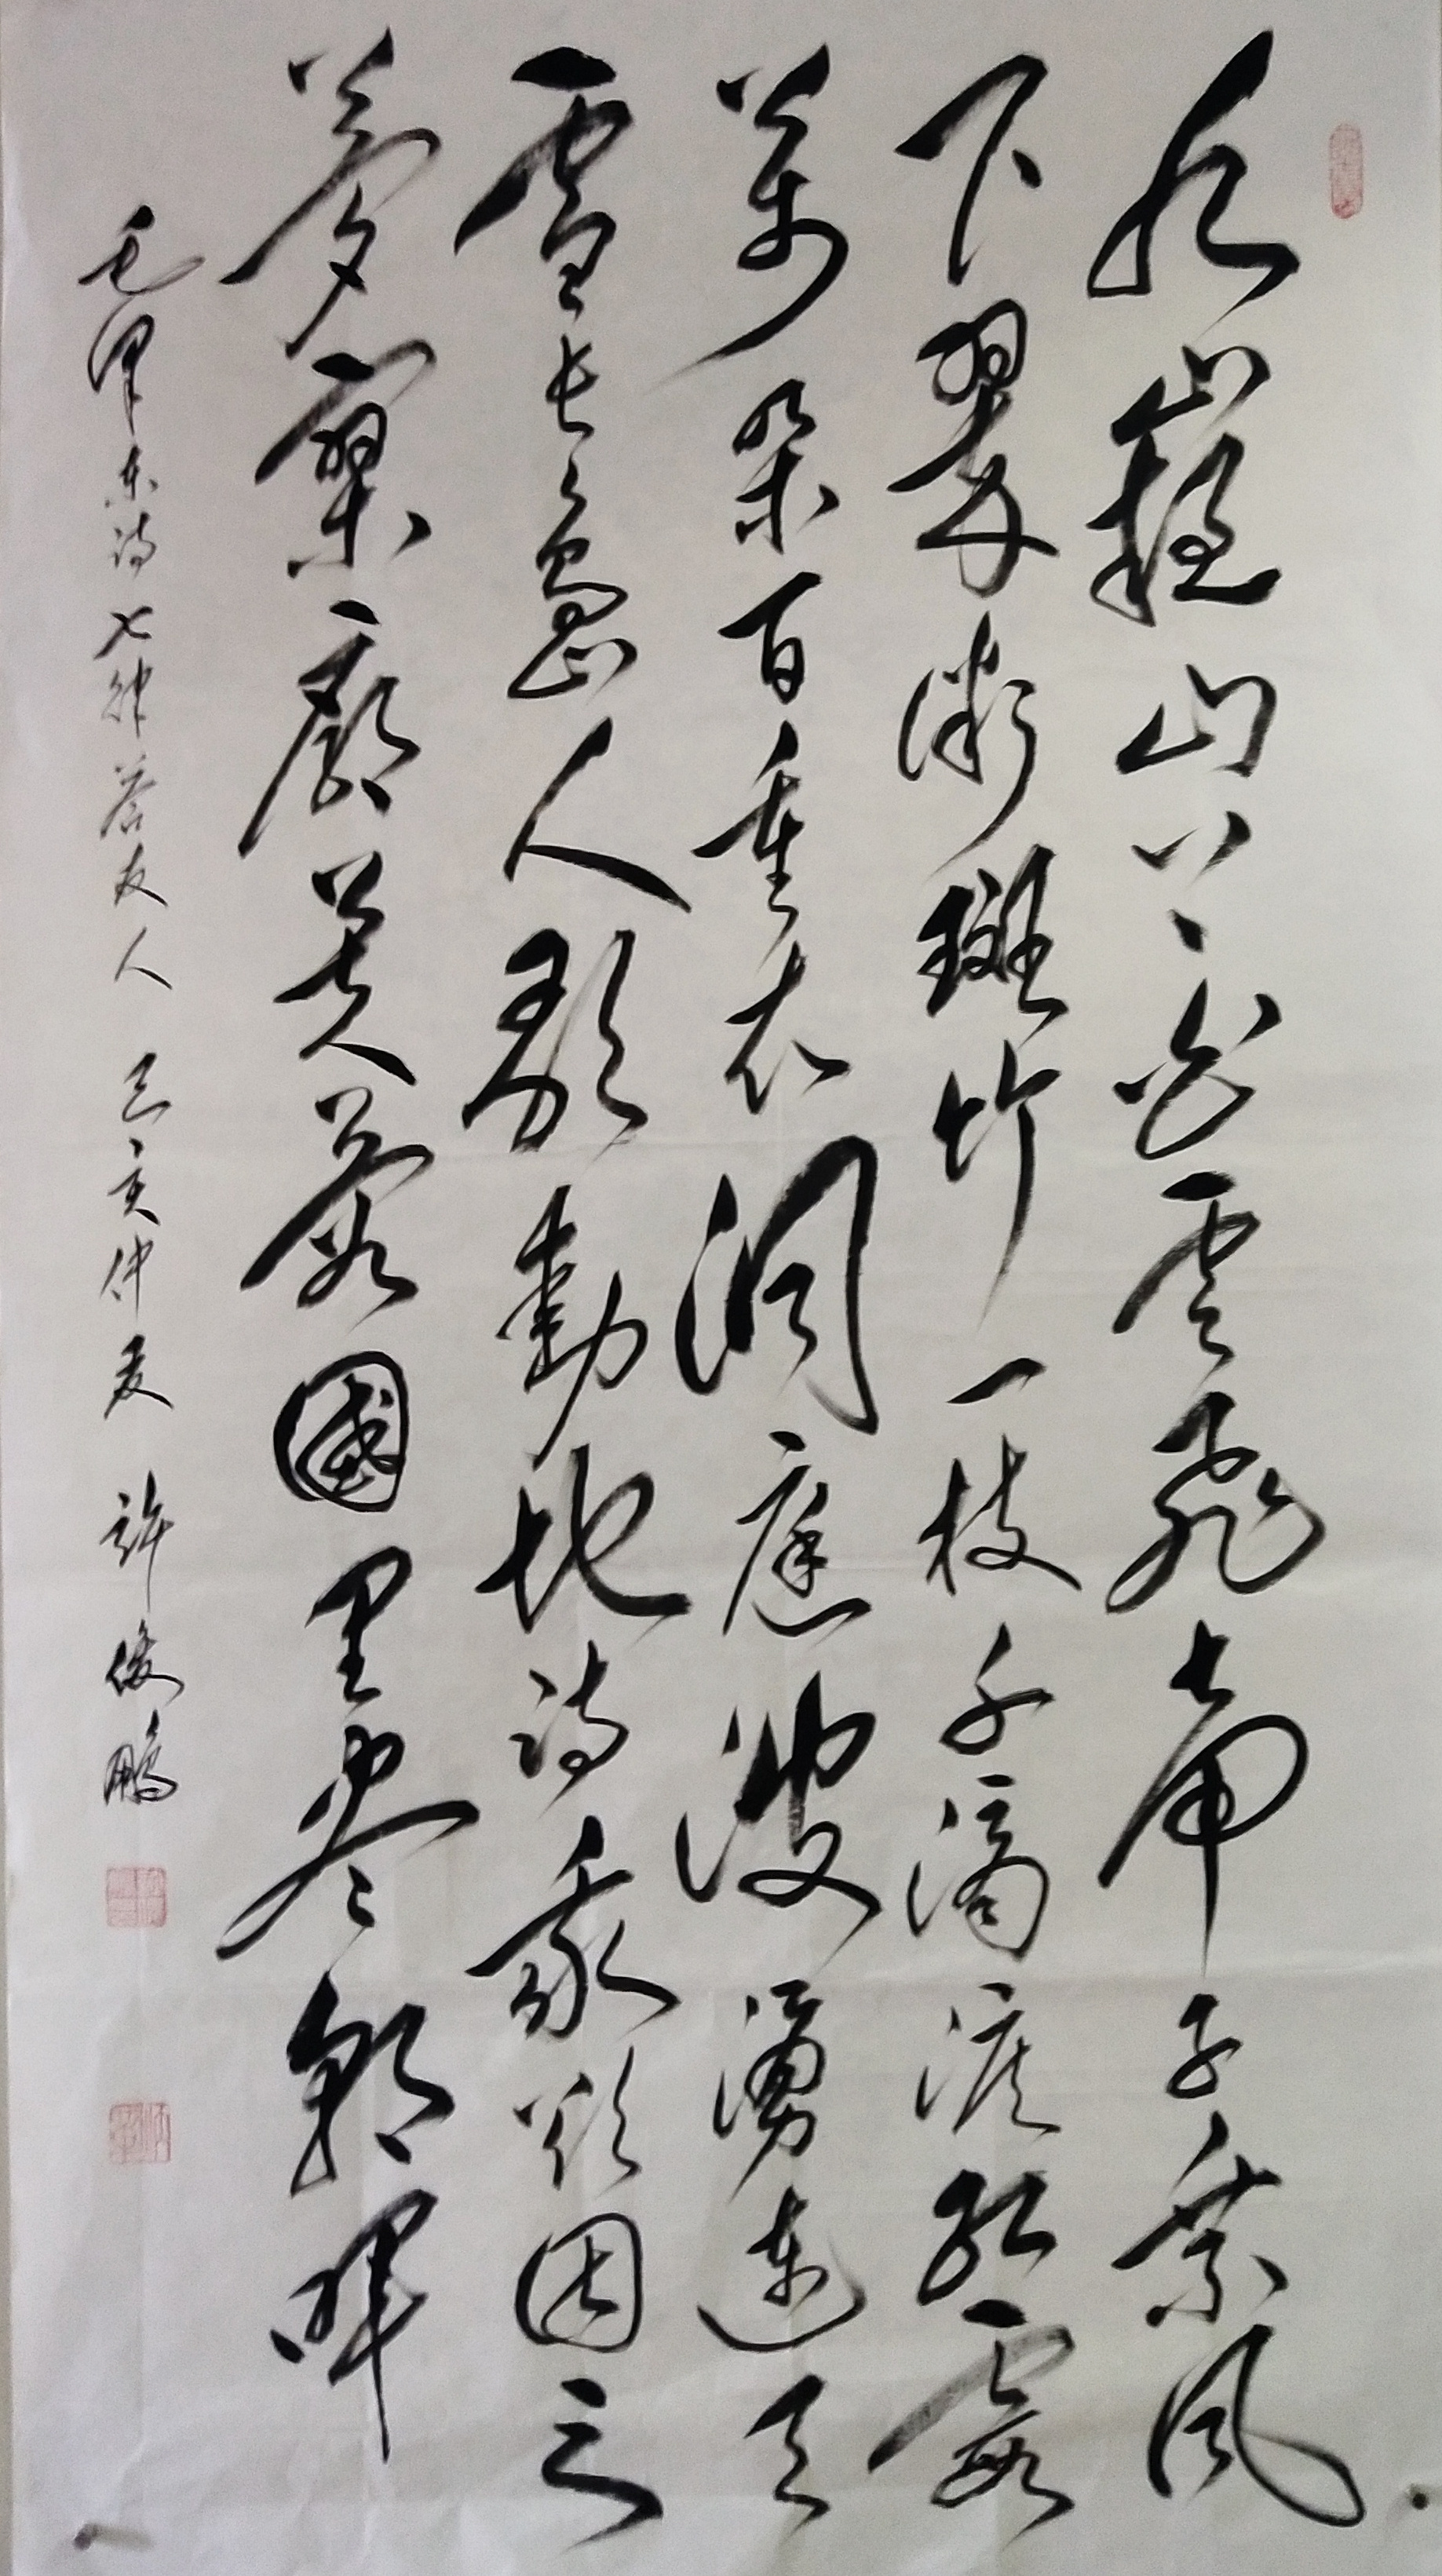 九嶷山上白雲飛帝子乘風
下翠微斑竹一枝千滴淚紅霞
萬朵百重衣洞庭波湧連天
雪長島人歌動地詩我欲因之
夢寥廓芙蓉國里尽朝暉
毛泽东诗七律答友人 己亥仲夏 許俊鵬